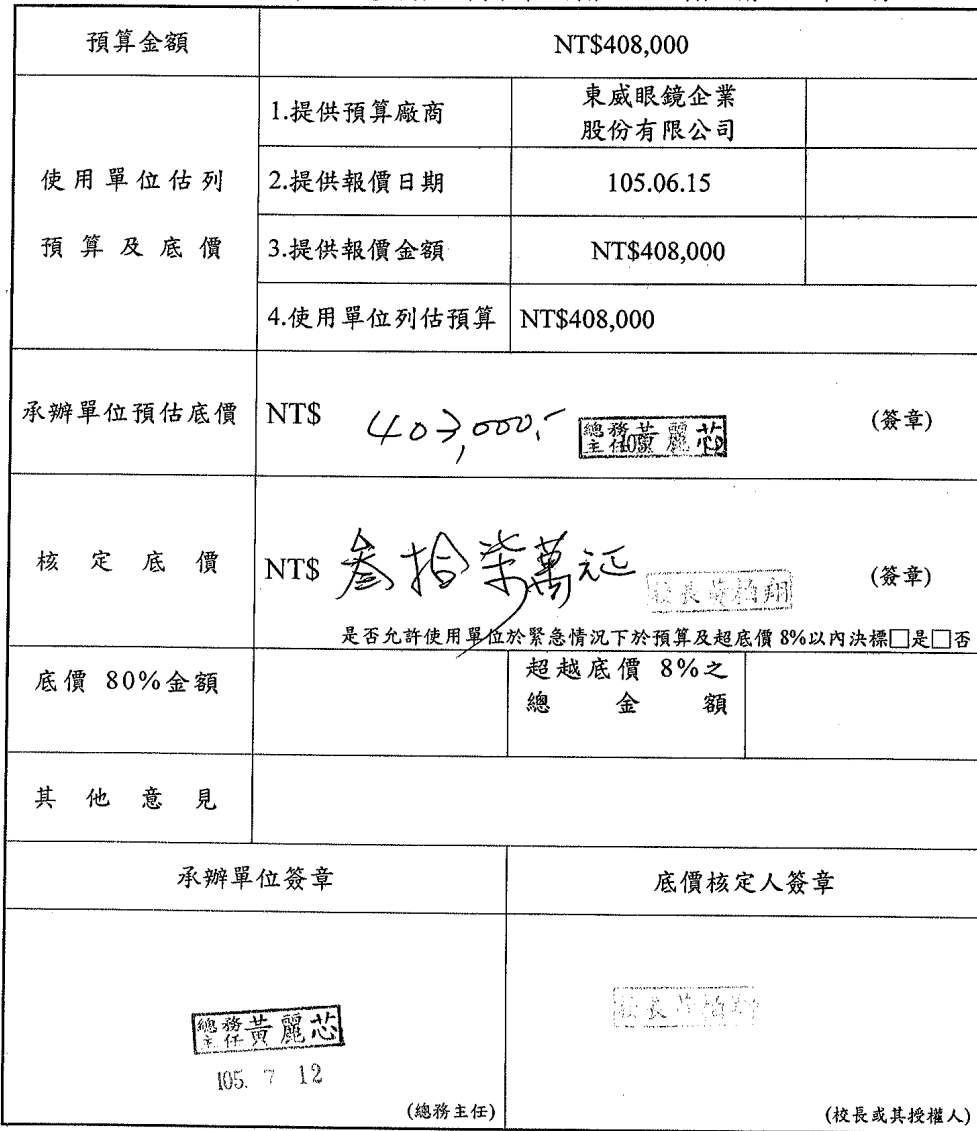 預算金額 NT$408,000
使用單位估列
預算及底價
1.提供預算廠商 東威眼鏡企業
股份有限公司
2.提供報價日期 105.06.15
3.提供報價金額 NT$408,000
4.使用單位列估預算 NT$408,000
承辦單位預估底價 NT$ 403,000.- 總務主任黃麗芯 (簽章)
核定底價 NT$ 叁拾柒萬元正 校長黃柏翔 (簽章)
是否允許使用單位於緊急情況下於預算及超底價 8%以內決標□是□否
底價 80%金額
超越底價 8%之
總金額
其他意見
承辦單位簽章 底價核定人簽章
總務主任黃麗芯
105. 7 12
(總務主任) (校長或其授權人)